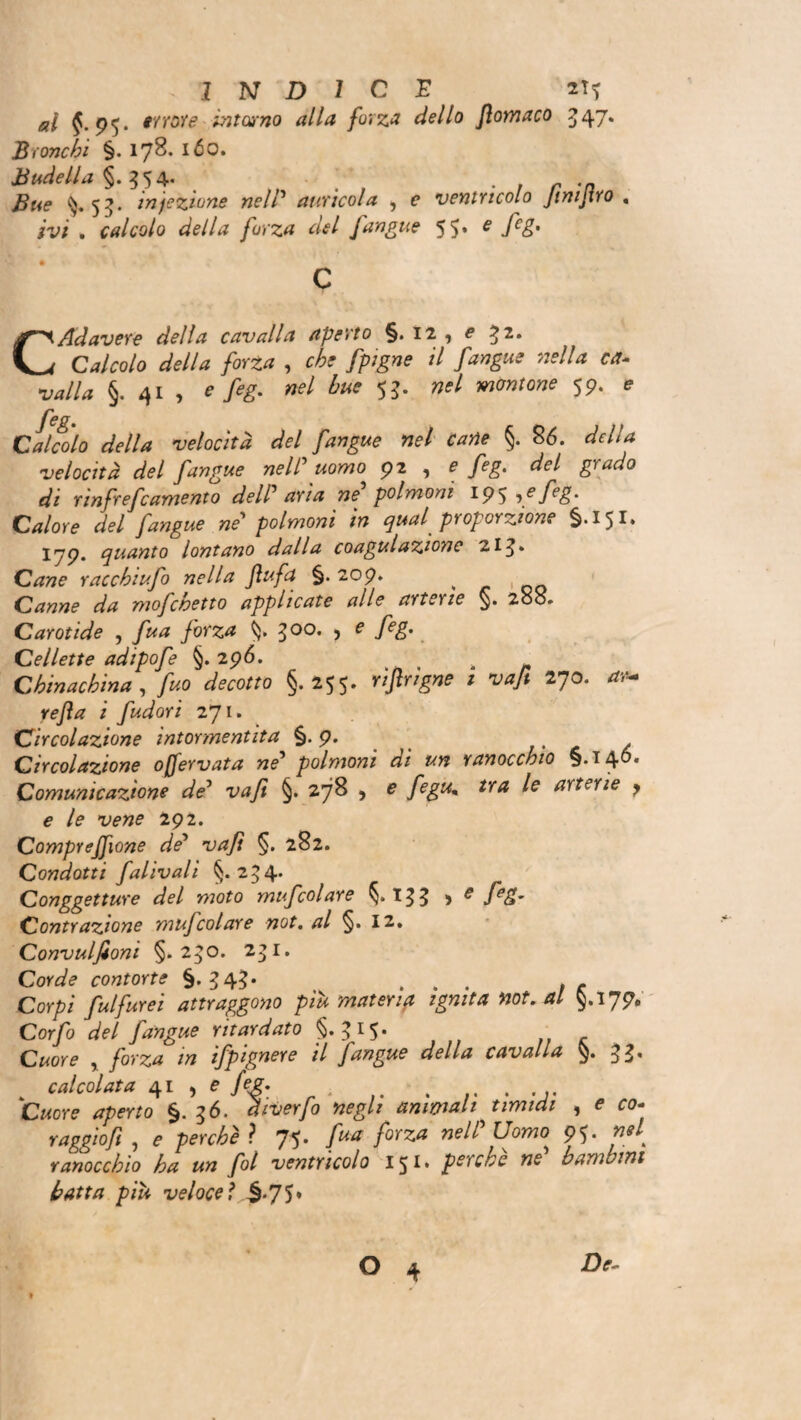 INDICE 215
al §. 95. errore intorno alla forza dello ſtomaco 347.
Bronchi §. 178. 160.
Budella §. 354.
Bue §. 53. injezione nell' auricola , e ventricolo ſiniſtro .
ivi . calcolo della forza del ſangue 55. e ſeg.
C
CAdavere della cavalla aperto §. 12 , e 32.
Calcolo della forza , che ſpigne il ſangue nella ca-
valla §. 41 , e ſeg. nel bue 53. nel montone 59. e
ſeg.
Calcolo della velocità del ſangue nel cane §. 86. della
velocità del ſangue nell' uomo 92 , e ſeg. del grado
di rinfreſcamento dell' aria ne' polmoni 195 , e ſeg.
Calore del ſangue ne' polmoni in qual proporzione §. 151.
179. quanto lontano dalla coagulazione 213.
Cane racchiuſo nella ſtufa §. 209.
Canne da moſchetto applicate alle arterie §. 288.
Carotide , ſua forza §. 300. , e ſeg.
Cellette adipoſe §. 296.
Chinachina , ſuo decotto §. 255. riſtrigne i vaſi 270. ar-
reſta i ſudori 271.
Circolazione intormentita §. 9.
Circolazione oſſervata ne' polmoni di un ranocchio §. 146.
Comunicazione de' vaſi §. 278 , e ſegu. tra le arterie ,
e le vene 292.
Compreſſione de' vaſi §. 282.
Condotti ſalivali §. 234.
Conggetture del moto muſcolare §. 133 , e ſeg.
Contrazione muſcolare not. al §. 12.
Convulſioni §. 230. 231.
Corde contorte §. 343.
Corpi ſulfurei attraggono più materia ignita not. al §. 179.
Corſo del ſangue ritardato §. 315.
Cuore , forza in iſpignere il ſangue della cavalla §. 33.
calcolata 41 , e ſeg.
Cuore aperto §. 36. diverſo negli animali timidi , e co-
raggioſi , e perchè ? 75. ſua forza nell' Uomo 95. nel
ranocchio ha un ſol ventricolo 151. perchè ne' bambini
batta più veloce ? §. 75.
O 4 De-